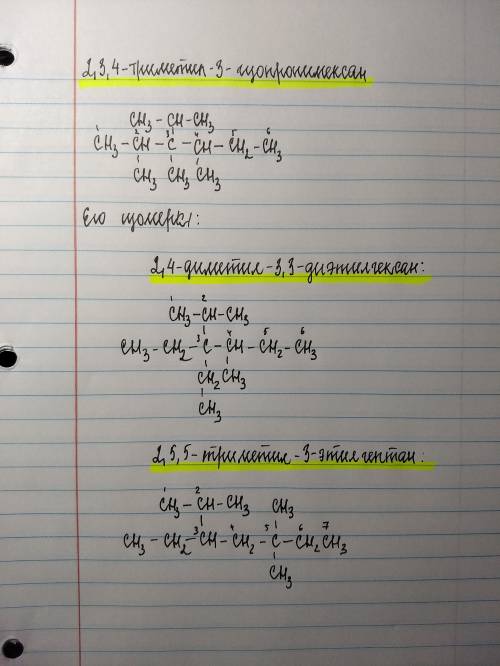 2,3,4-триметил-3-изопропилгексан
CH3 - CH - CH3
1 2 3 4 5 6
CH3 - CH - C - CH - CH2 - CH3
CH3 CH3 CH3
Его изомеры:
2,4-диметил-3,3-диэтилгексан:
1 2
CH3 - CH - CH3
3 4 5 6
CH3 - CH2 - C - CH - CH2 - CH3
CH2 CH3
CH3
2,5,5-триметил-3-этилгептан:
1 2
CH3 - CH - CH3 CH3
3 4 5 6 7
CH3 - CH2 - CH - CH2 - C - CH2 CH3
CH3